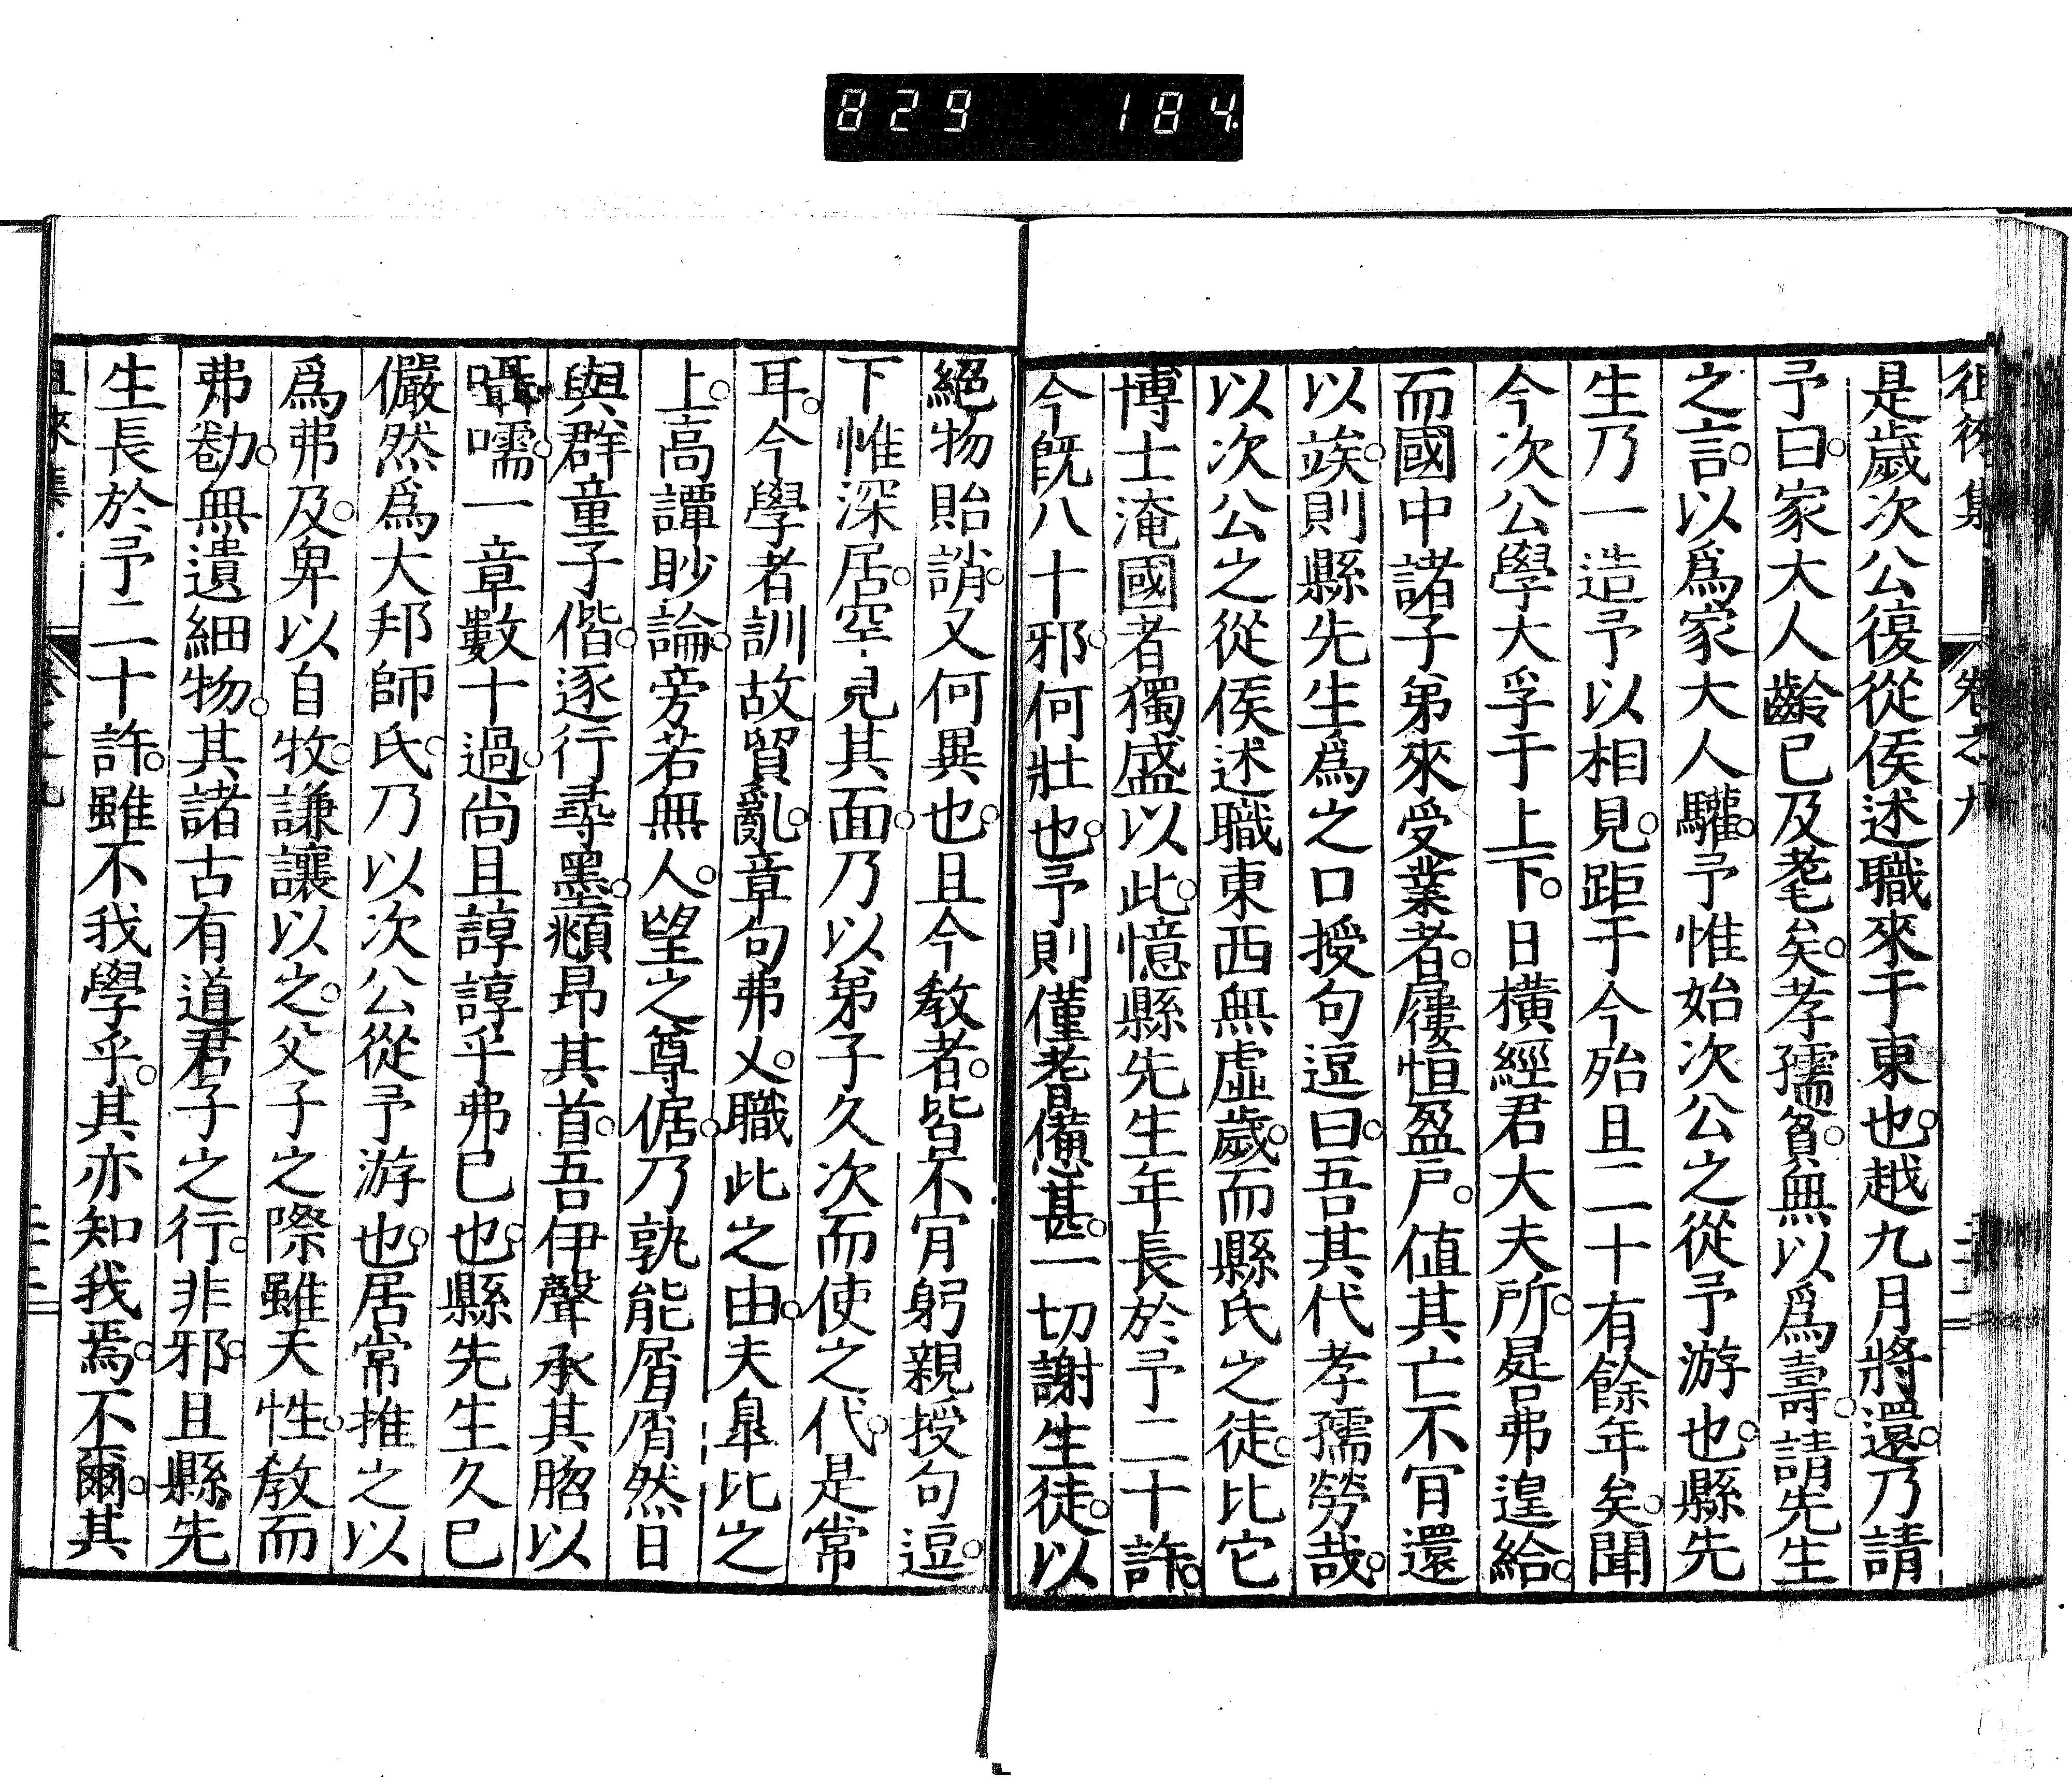 829 184
徂徠集 卷之九
是歲次公復從侯述職來于東也越九月將還乃請
予曰家大人齡已及耄矣孝孺貧無以爲壽請先生
之言以爲家大人驩予惟始次公之從予游也縣先
生乃一造予以相見距于今殆且二十有餘年矣聞
今次公學大孚于上下日橫經君大夫所㫷弗遑給
而國中諸子弟來受業者屨恒盈戸値其亡不肎還
以竢則縣先生爲之口授句逗曰吾其代孝孺勞哉
以次公之從侯述職東西無虛歲而縣氏之徒比它
博士淹國者獨盛以此憶縣先生年長於予二十許
今旣八十邪何壯也予則僅耆憊甚一切謝生徒以
絕物貽誚又何異也且今敎者皆不肎躬親授句逗
下帷深居罕見其面乃以弟子久次而使之代是常
耳今學者訓故貿亂章句弗乂職此之由夫皐比之
上高譚眇論旁若無人望之尊倨乃孰能屑屑然日
與群童子偕逐行尋墨頫昂其首吾伊聲承其䏚以
囁嚅一章數十過尚且諄諄乎弗已也縣先生久已
儼然爲大邦師氏乃以次公從予游也居常推之以
爲弗及卑以自牧謙讓以之父子之際雖天性敎而
弗勌無遺細物其諸古有道君子之行非邪且縣先
生長於予二十許雖不我學乎其亦知我焉不爾其
徂徠集 卷之九